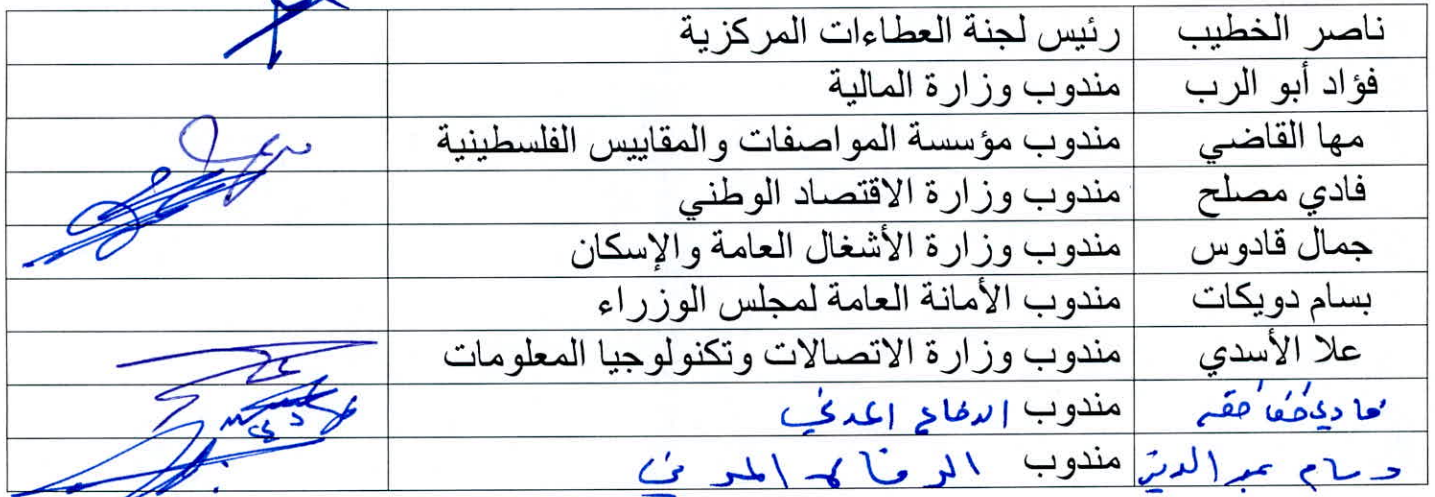 ناصر الخطيب رئيس لجنة العطاءات المركزية
فؤاد أبو الرب مندوب وزارة المالية
مها القاضي مندوب مؤسسة المواصفات والمقاييس الفلسطينية
فادي مصلح مندوب وزارة الاقتصاد الوطني
جمال قادوس مندوب وزارة الأشغال العامة والإسكان
بسام دويكات مندوب الأمانة العامة لمجلس الوزراء
علا الأسدي مندوب وزارة الاتصالات وتكنولوجيا المعلومات
مندوب الدفاع المدني
مندوب الدفاع المدني